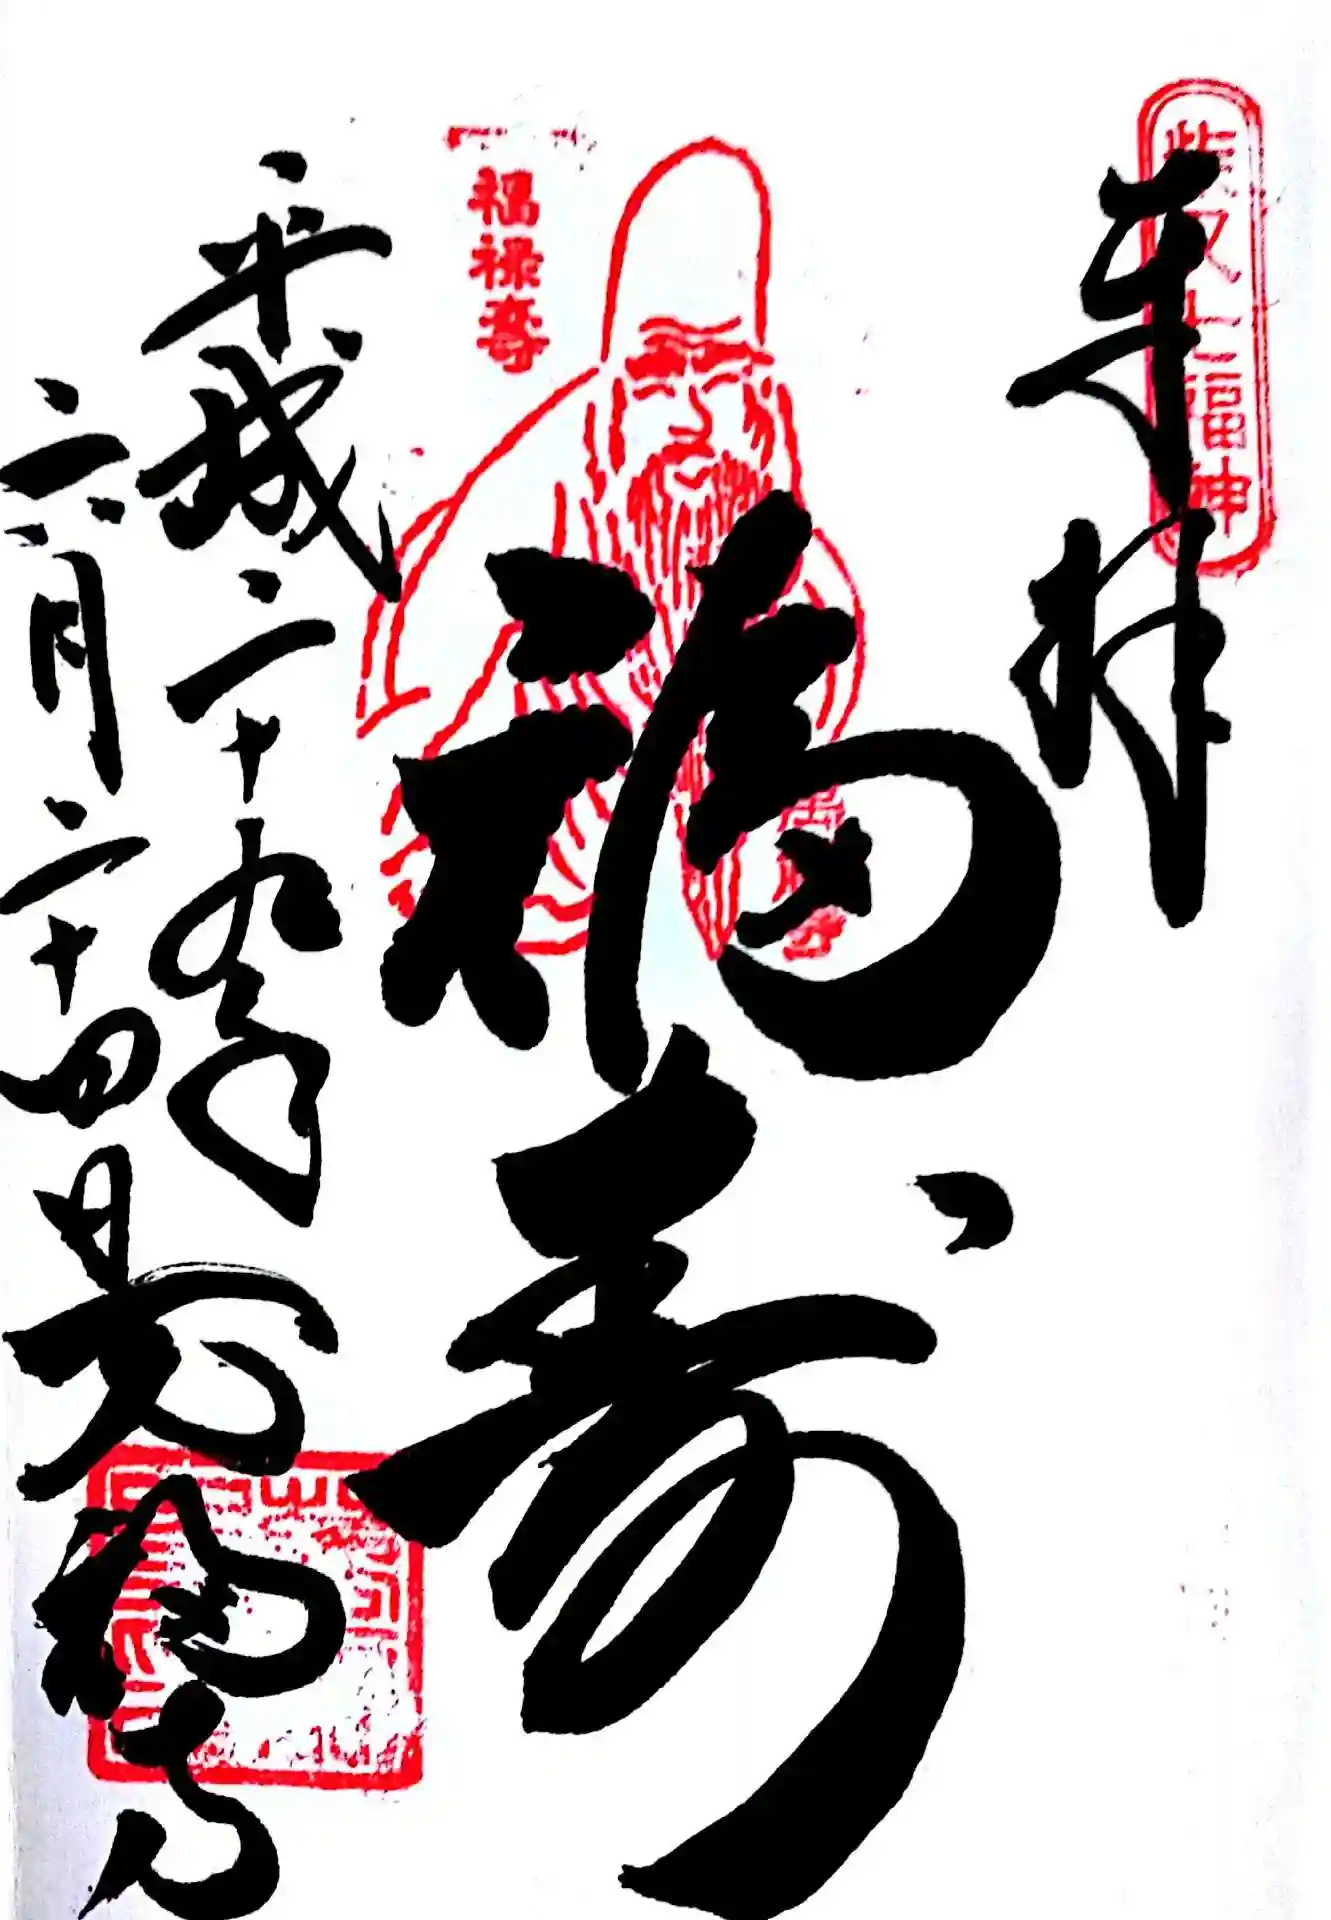 柴又七福神
奉拝
福禄寿
福寿
平成二十九年
六月二十四日 万福寺